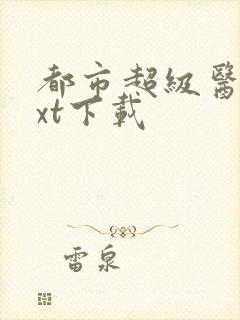 都市超級醫
xt下載
雷泉